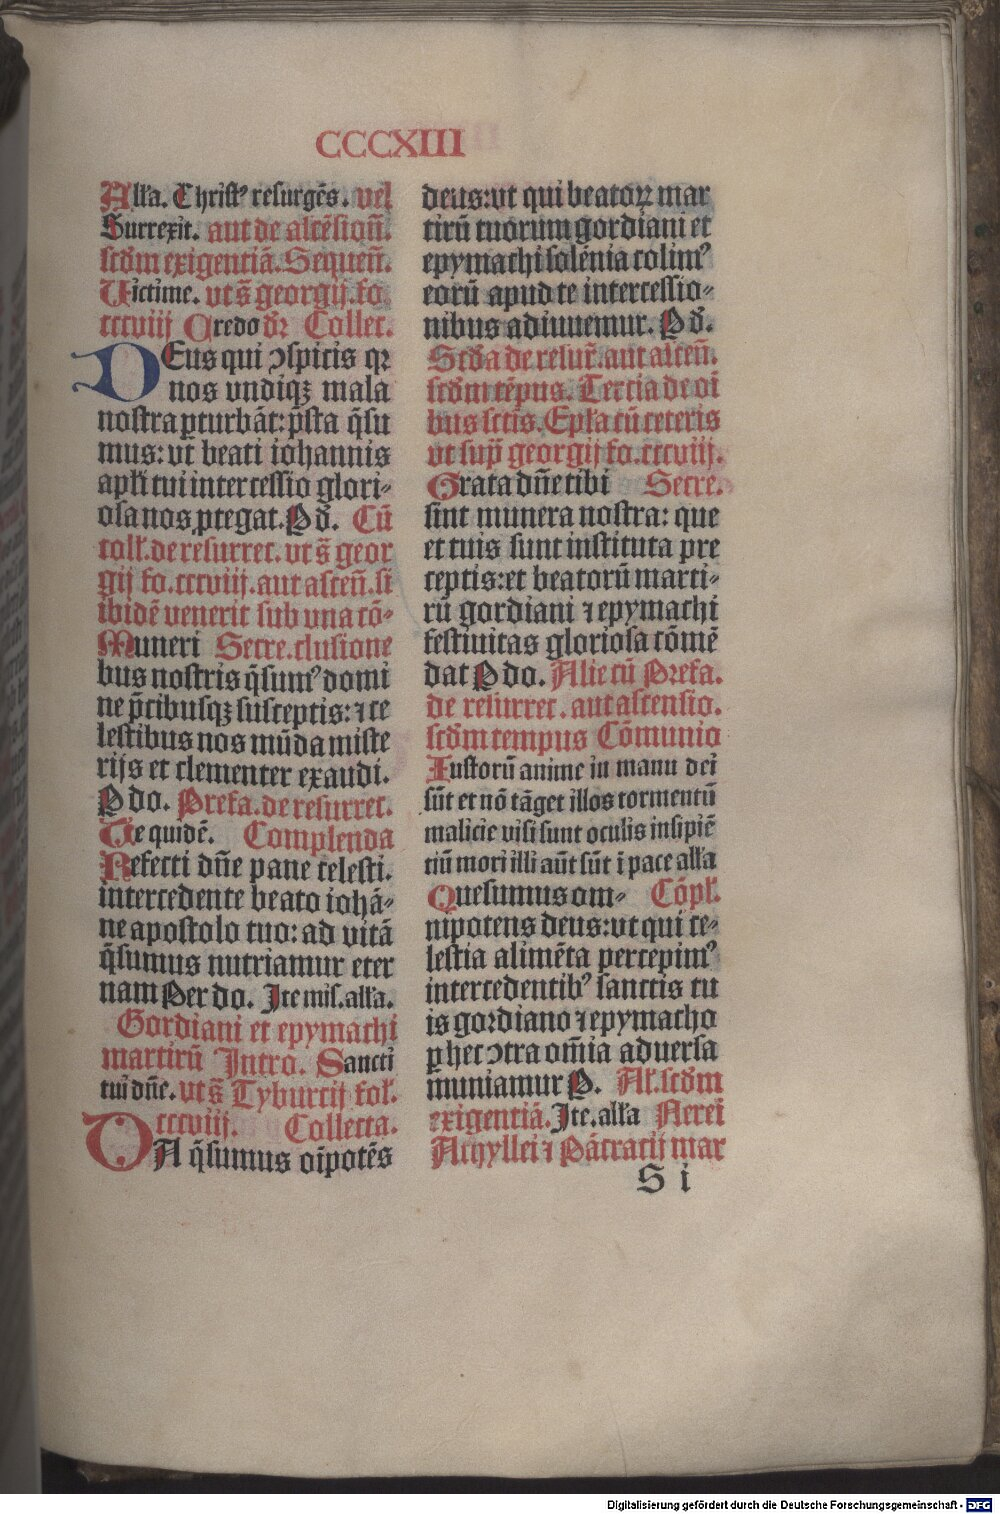 CCCXIII
Alľa. Christꝰ resurgēs. vel
Surrexit. aut de ascēsioñ.
scďm exigentiā. Sequeñ.
Victime. vt s̄ georgij. fo.
cccviij Credo dr̄ Collec.
DEus qui ↄspicis qꝛ
nos vndiqꝫ mala
nostra ꝑturbāt: p̄sta q̄su
mus: vt beati iohannis
apľi tui intercessio glori⸗
osa nos ꝓtegat. P d̄. Cū
coll̄. de resurrec. vt s̄ geor
gij fo. cccviij. aut asceñ. si
ibidē venerit sub vna cō⸗
Muneri Secre. clusione
bus nostris q̄sumꝰ domi
ne p̄cibusqꝫ susceptis: ⁊ ce
lestibus nos mūda miste
rijs et clementer exaudi.
P do. Prefa. de resurrec.
Te quidē. Complenda
Refecti dn̄e pane celesti.
intercedente beato iohā⸗
ne apostolo tuo: ad vitā
q̄sumus nutriamur eter
nam Per do. Ite mis. alľa.
Gordiani et epymachi
martirū Intro. Sancti
tui dn̄e. vt s̄ Tyburcij fol̄.
cccviij. Collecta.
DA q̄sumus oīpotēs
deus: vt qui beatoꝝ mar
tirū tuorum gordiani et
epymachi solēnia colimꝰ
eorū apud te intercessio⸗
nibus adiuuemur. P d̄.
Scďa de resur̄. aut asceñ.
scďm tēpus. Tercia de oī
bus sctīs. Epľa cū ceteris
vt sup̄ georgij fo. cccviij.
Grata dn̄e tibi Secre.
sint munera nostra: que
et tuis sunt instituta pre
ceptis: et beatorū marti⸗
rū gordiani ⁊ epymachi
festiuitas gloriosa cōmē
dat P do. Alie cū Prefa.
de resurrec. aut ascensio.
scďm tempus Cōmunio
Iustorū anime in manu dei
sūt et nō tāget illos tormentū
malicie visi sunt oculis insipiē
tiū mori illi aūt sūt ī pace alľa
Quesumus om⸗ Cōpľ.
nipotens deus: vt qui ce⸗
lestia alimēta percepimꝰ
intercedentibꝰ sanctis tu
is gordiano ⁊ epymacho
ꝑ hec ↄtra om̄ia aduersa
muniamur P. Aľ. scďm
exigentiā. Ite. alľa Nerei
Achyllei ⁊ Pācracij mar
S i
Digitalisierung gefördert durch die Deutsche Forschungsgemeinschaft - DFG